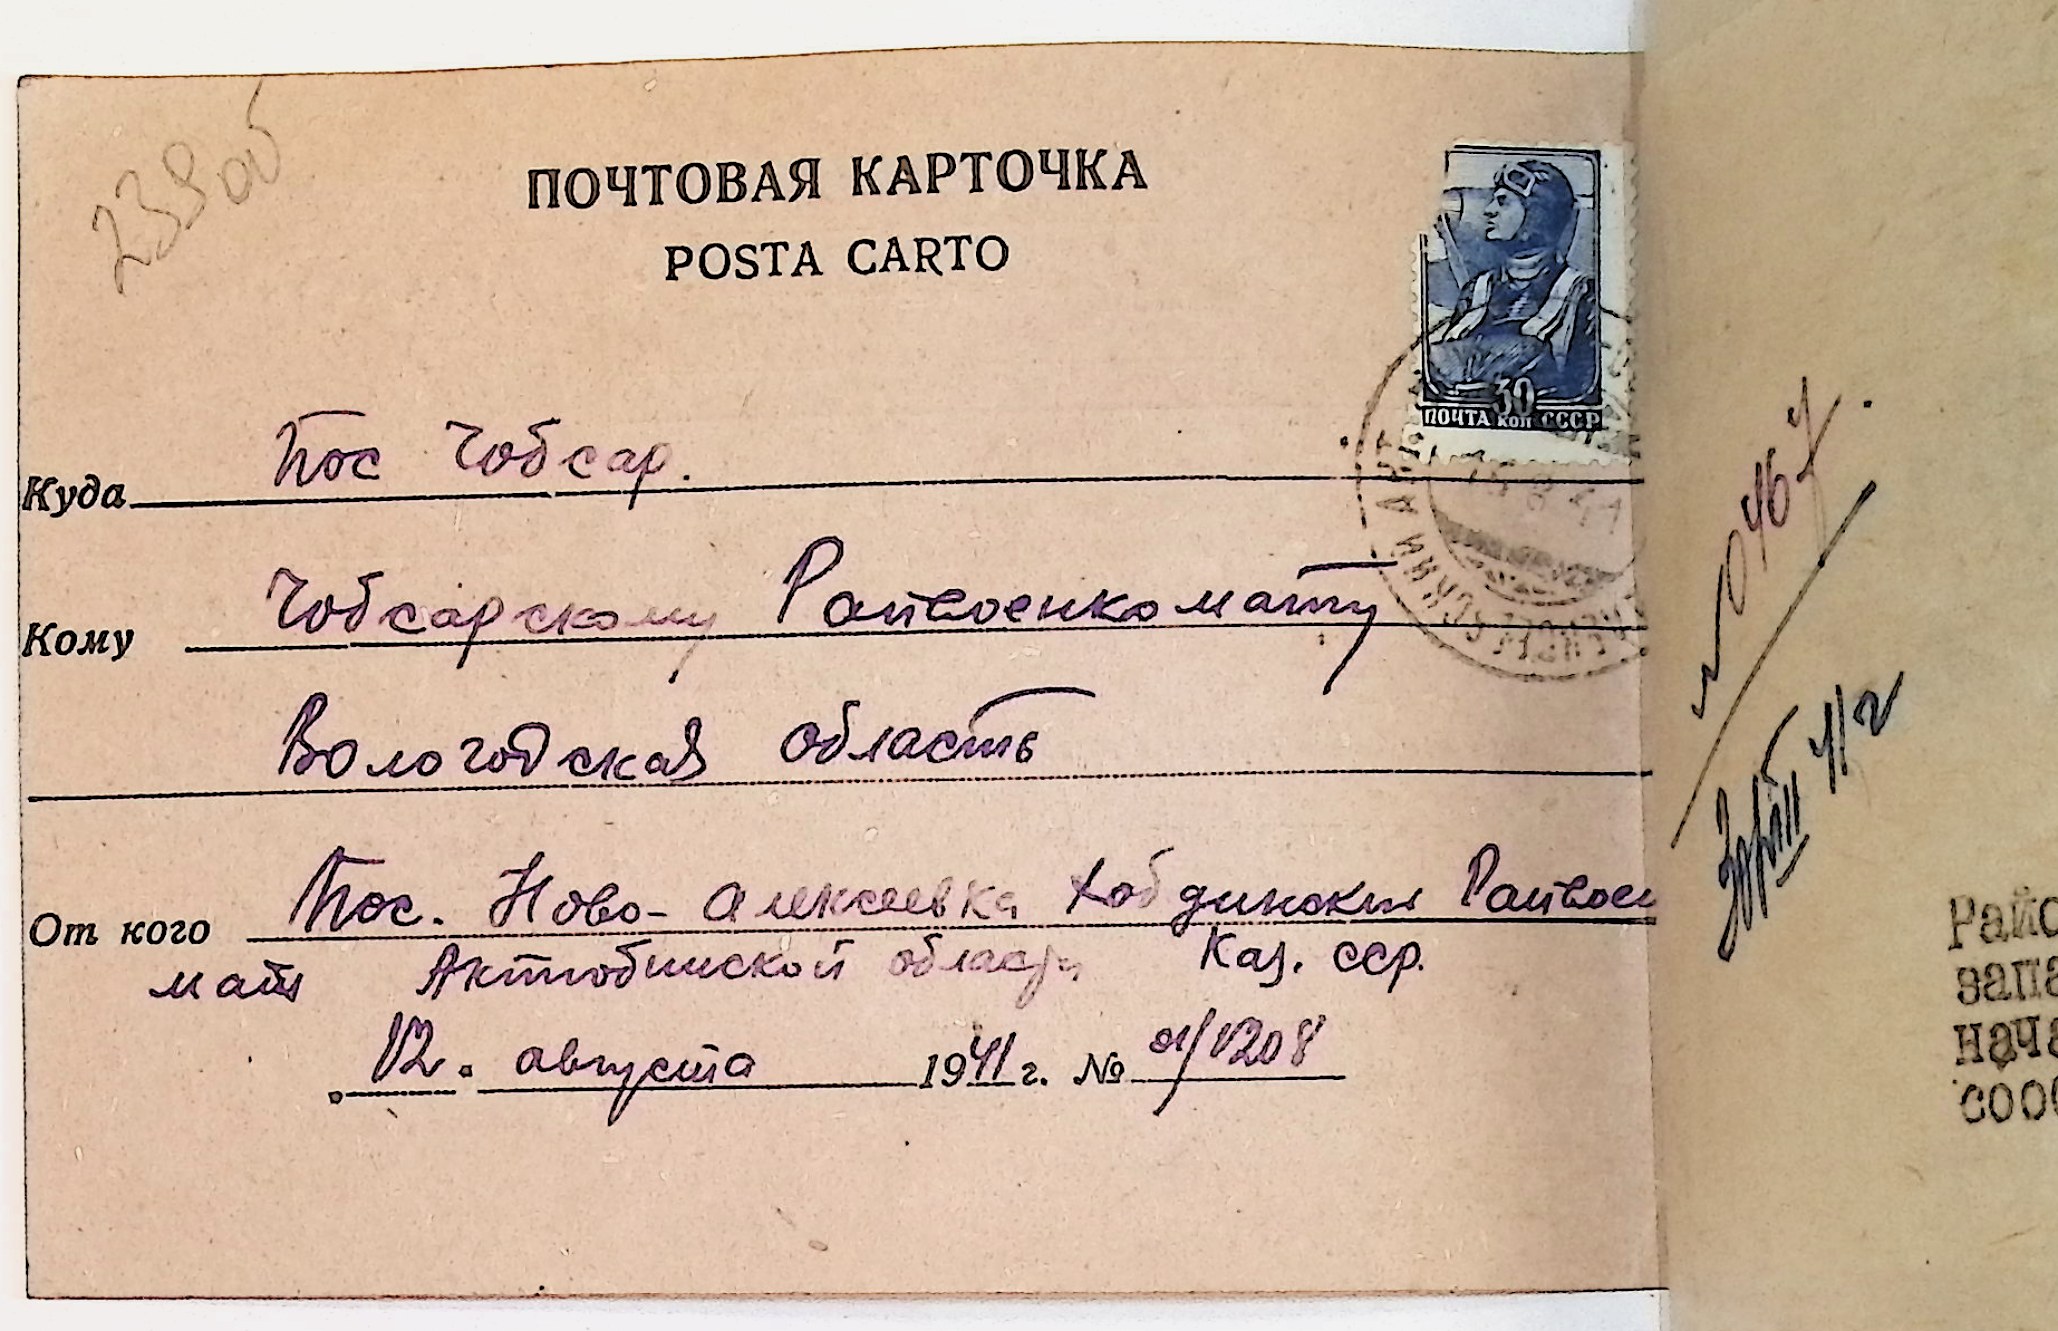 239об
ПОЧТОВАЯ КАРТОЧКА
POSTA CARTO
30
ПОЧТА КОП СССР
Куда Пос Чобсар.
Кому Чобсарскому Райвоенкомату
Вологодская область
От кого Пос. Ново-Алексеевка Хобдинский Райвоен
мат Актюбинской области Каз. сср.
12. августа 1941 г. №
41 г
Райо
запа
нача
сооб